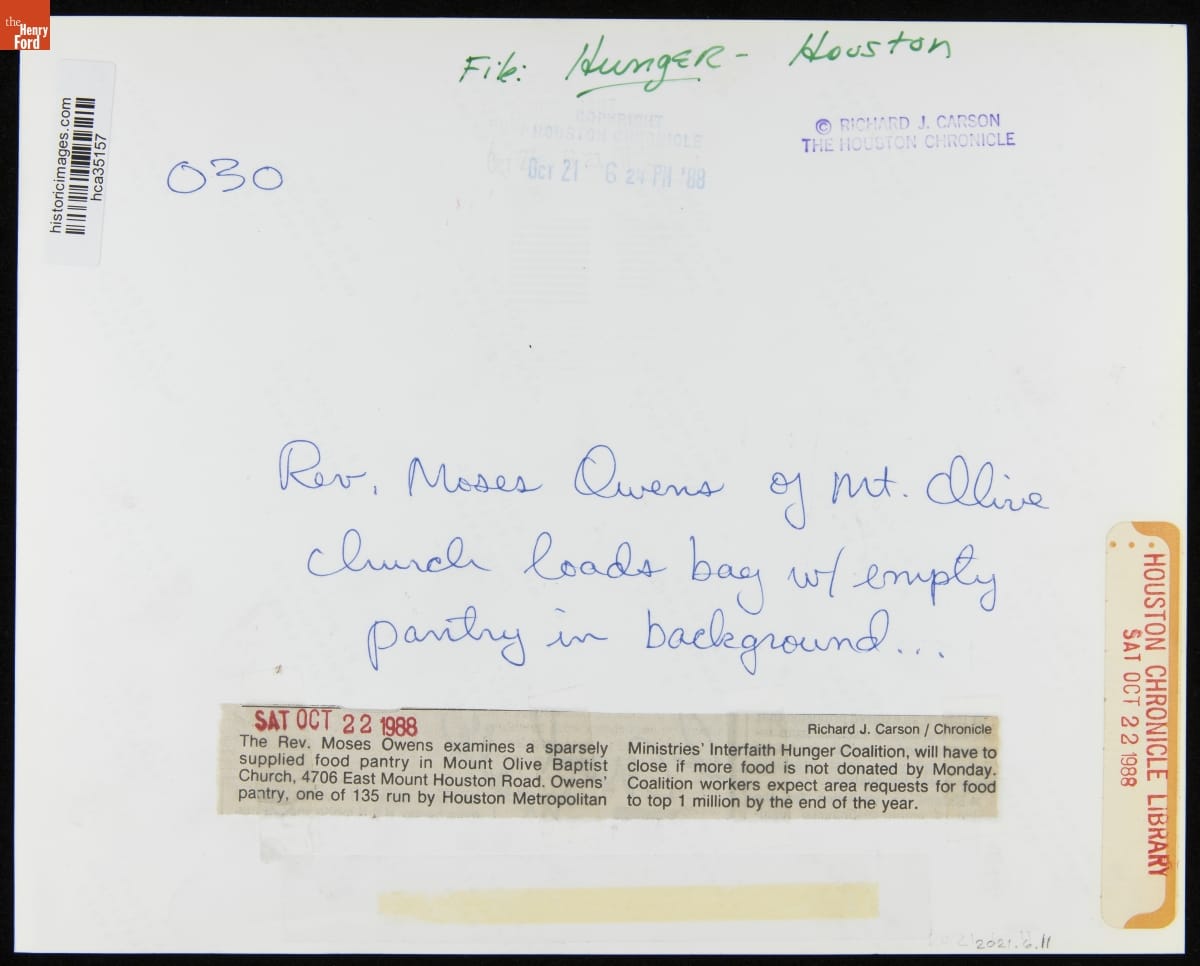 the
Henry
Ford
File: Hunger - Houston
historicimages.com
hca35157
COPYRIGHT
HOUSTON CHRONICLE
Oct 21 6 24 PM '88
© RICHARD J. CARSON
THE HOUSTON CHRONICLE
030
Rev. Moses Owens of Mt. Olive
church loads bag w/ empty
pantry in background...
SAT OCT 22 1988
The Rev. Moses Owens examines a sparsely
supplied food pantry in Mount Olive Baptist
Church, 4706 East Mount Houston Road. Owens'
pantry, one of 135 run by Houston Metropolitan
Richard J. Carson / Chronicle
Ministries' Interfaith Hunger Coalition, will have to
close if more food is not donated by Monday.
Coalition workers expect area requests for food
to top 1 million by the end of the year.
HOUSTON CHRONICLE LIBRARY
SAT OCT 22 1988
2021.6.11